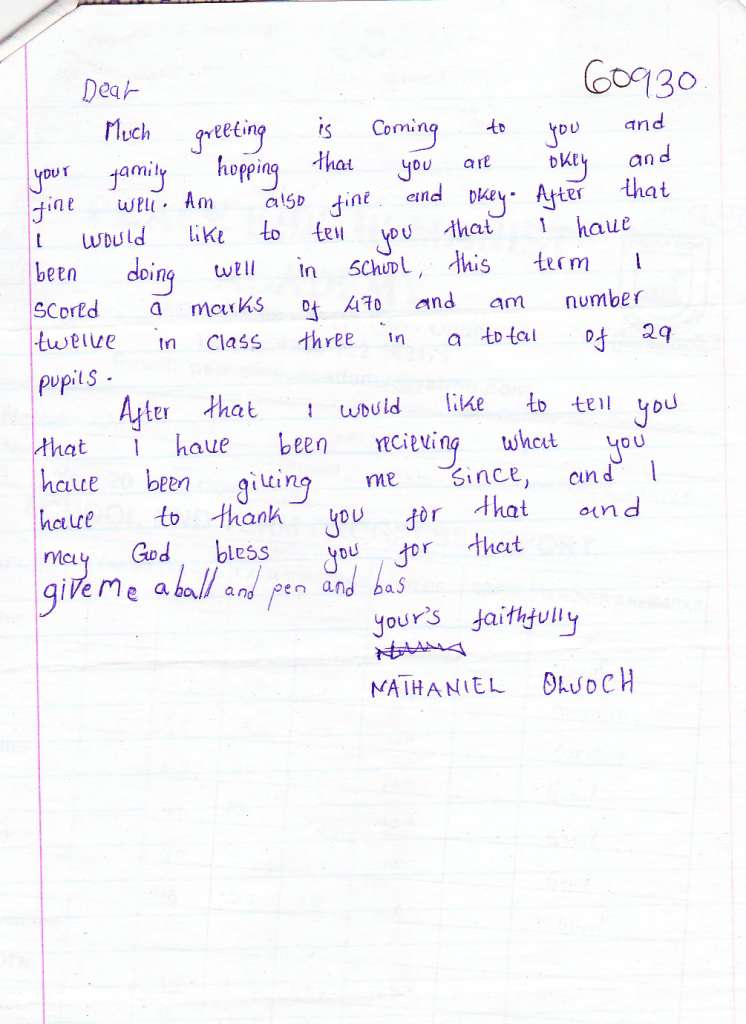 60930
Dear
Much greeting is Coming to you and
your family hopping that you are okey and
fine well. Am also fine and okey. After that
I would like to tell you that I have
been doing well in school, this term I
scored a marks of 470 and am number
twelve in class three in a total of 29
pupils.
After that I would like to tell you
that I have been recieving what you
have been giving me since, and I
have to thank you for that and
may God bless you for that
give me a ball and pen and bas
your's faithfully
NATHANIEL OLUOCH